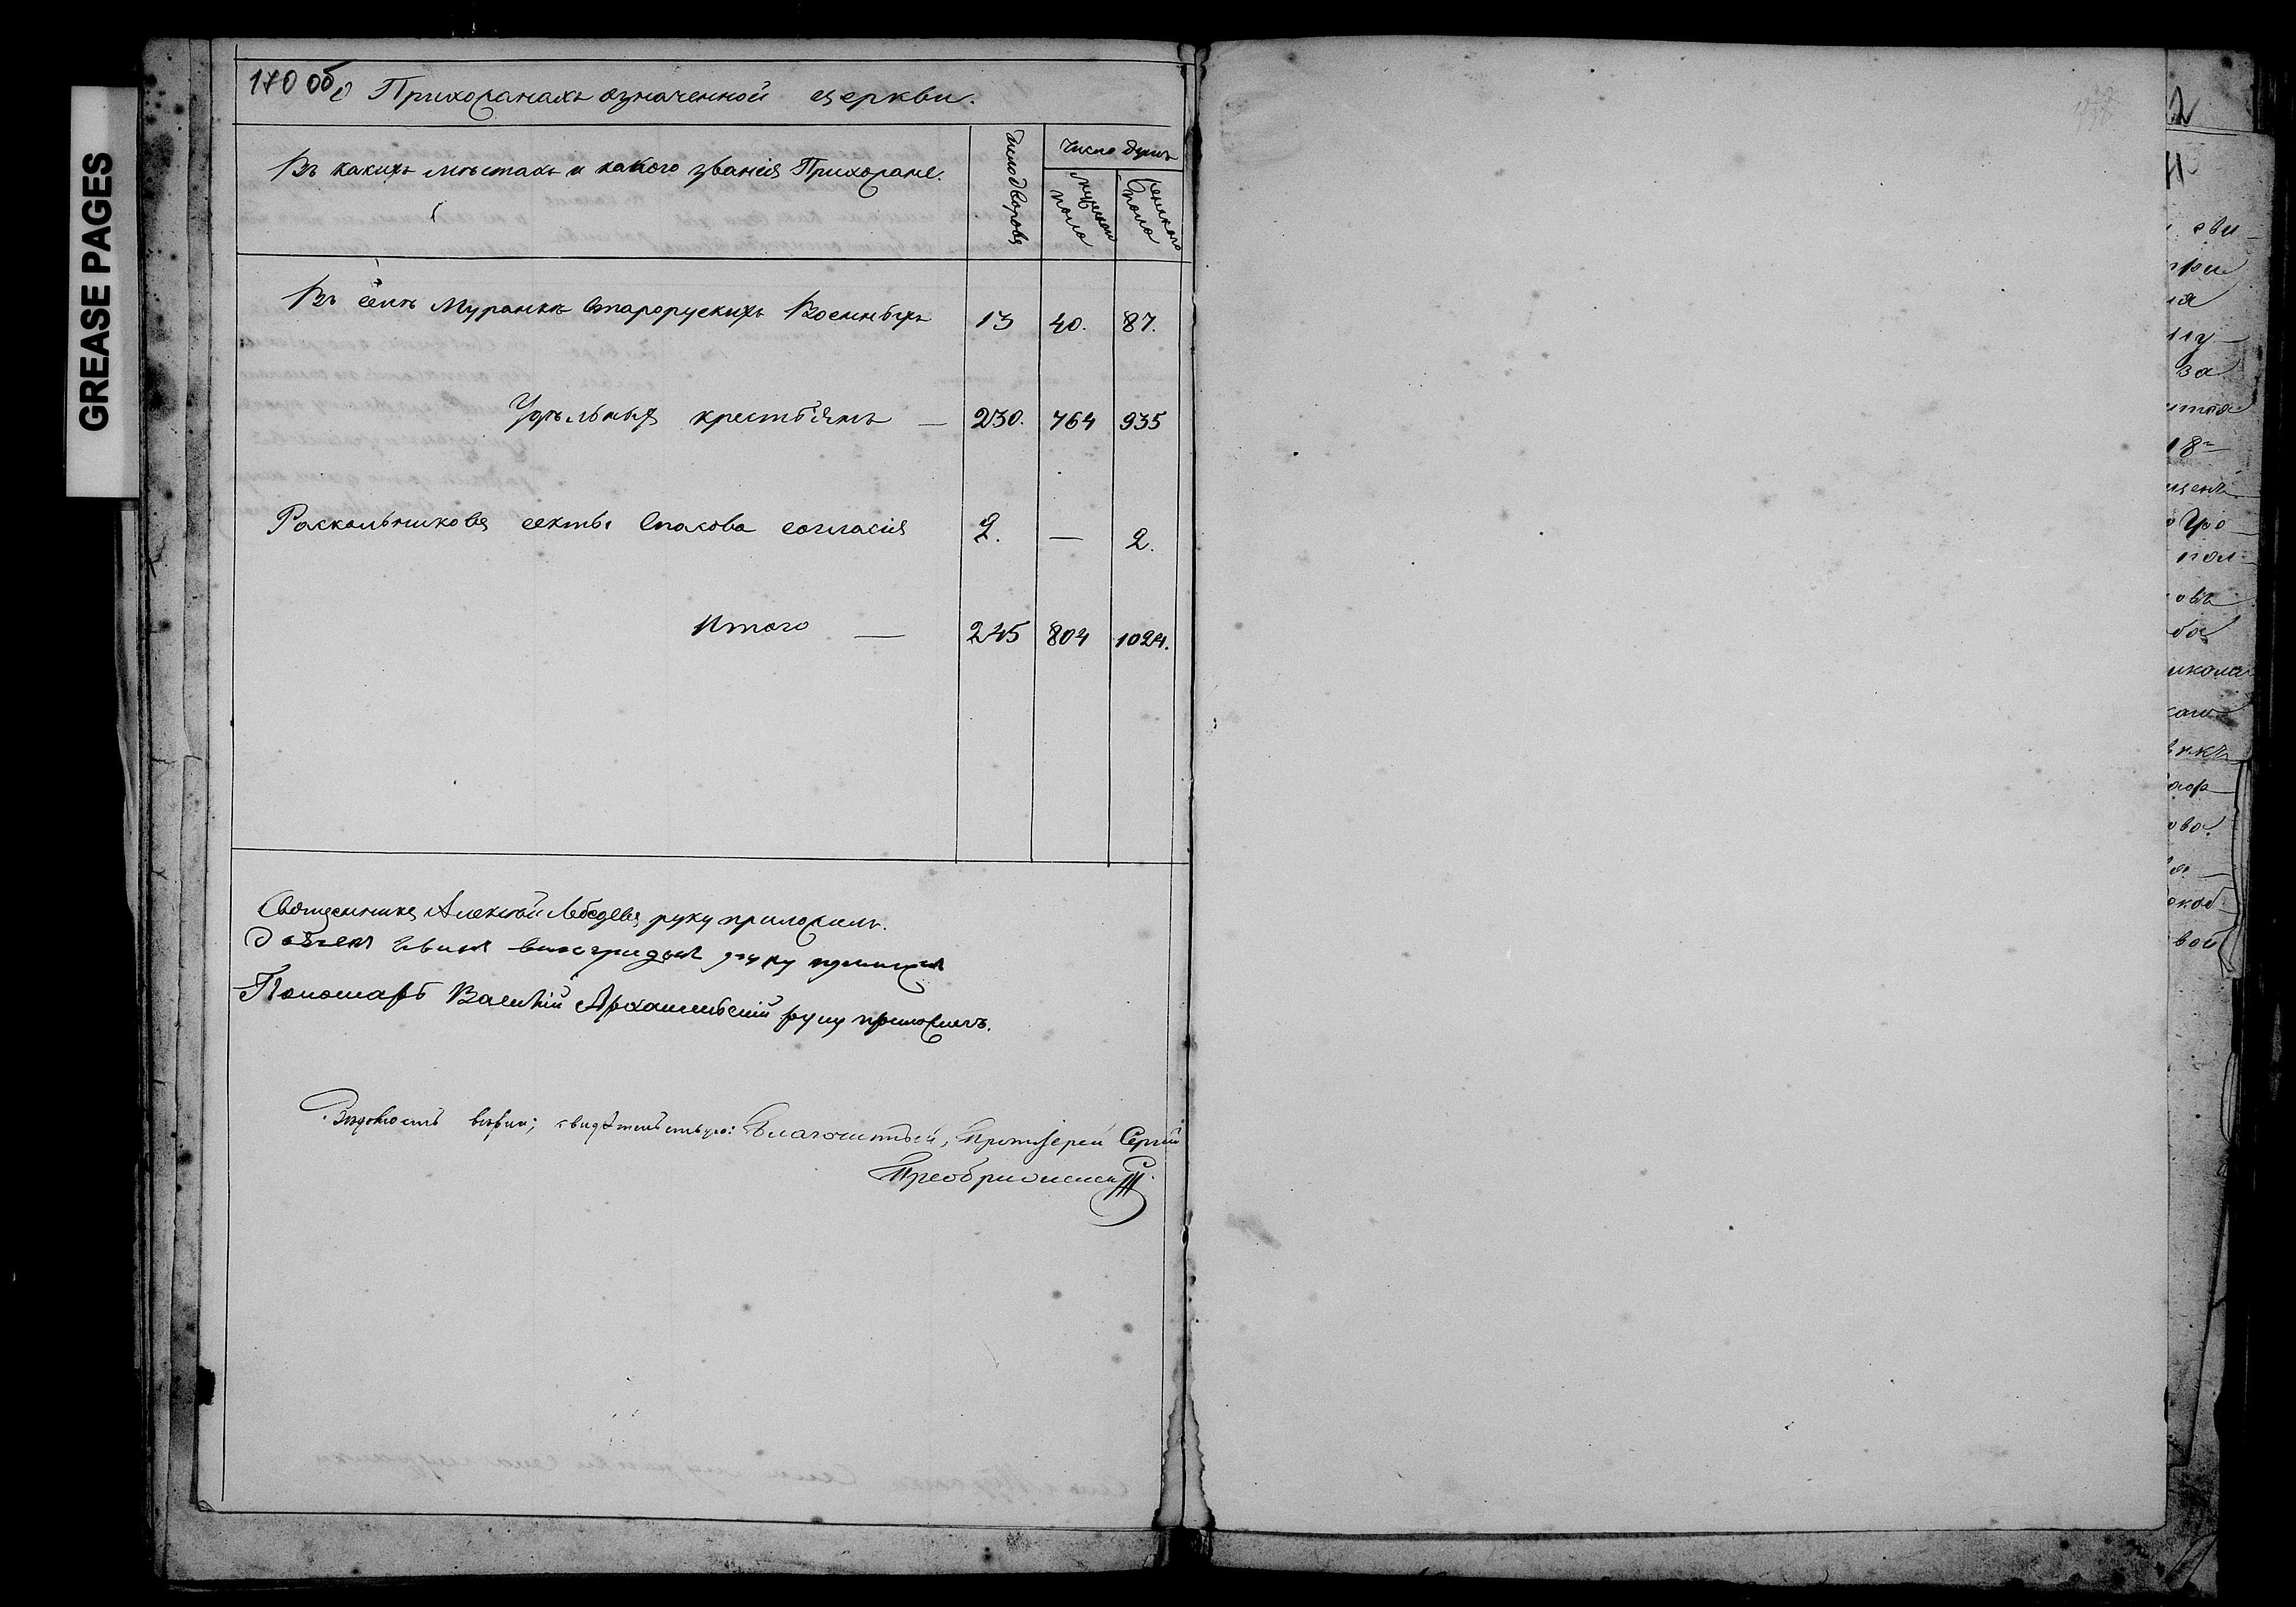 GREASE PAGES
170 об
О Прихожанахъ означенной церкви.
Въ какихъ мѣстахъ и какого званія Прихожане.
Число дворовъ
Число душъ
мужеска пола
женскаго пола
Въ селѣ Муранкѣ Старорускихъ Военныхъ 13 40. 87.
Удѣльныхъ крестьянъ — 230. 764 935
Раскольниковъ секты Спасова согласія 2. — 2.
Итого — 245 804 1024.
Священникъ Алексѣй Лебедевъ руку приложилъ.
руку приложилъ
Пономарь Василій Архангельскій руку приложилъ.
Вѣдомость вѣрна; свидѣтельствую: Благочинный, Протоіерей Сергій
Преображенскій.